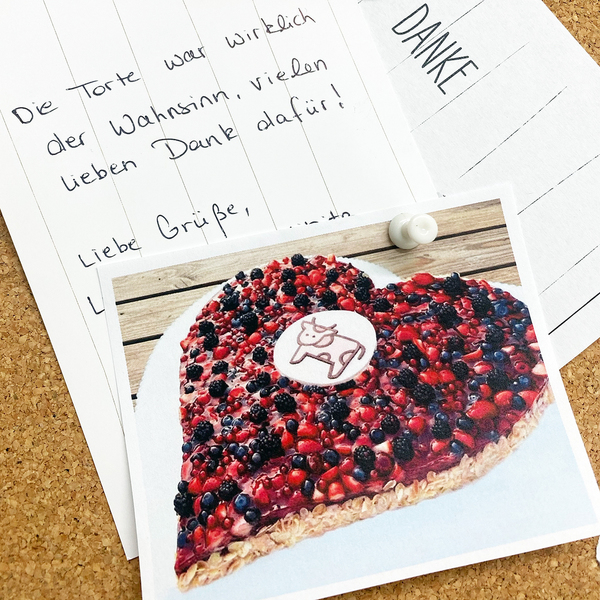 Die Torte war wirklich
der Wahnsinn, vielen
lieben Dank dafür!
Liebe Grüße,
DANKE